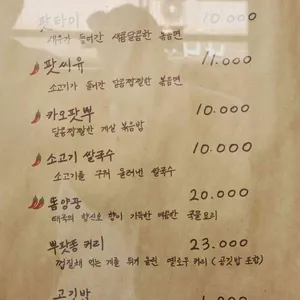 팟타이 10,000
새우가 들어간 새콤달콤한 볶음면
팟씨유 11,000
소고기가 들어간 달콤짭짤한 볶음면
카오팟뿌 10,000
달콤짭짤한 게살 볶음밥
소고기 쌀국수 10,000
소고기를 구워 올려낸 쌀국수
똠양꿍 20,000
태국의 향신료 향이 가득한 매콤한 국물요리
뿌팟퐁 커리 23,000
껍질채 먹는 게를 튀겨 올린 옐로우 커리 (공깃밥 포함)
고기밥